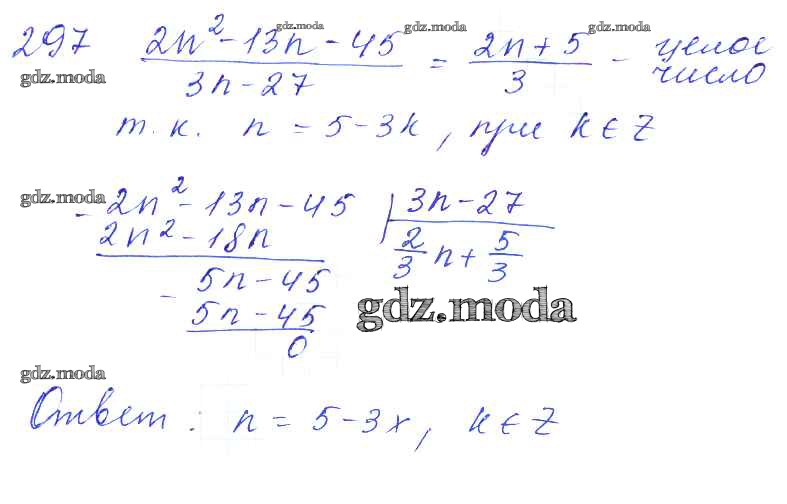 297 (2n² - 13n - 45)/(3n - 27) = (2n + 5)/3 - целое число
т. к. n = 5 - 3k, при k ∈ Z
- 2n² - 13n - 45 | 3n - 27
2n² - 18n | 2/3 n + 5/3
- 5n - 45
5n - 45
0
Ответ: n = 5 - 3x, k ∈ Z
gdz.moda
gdz.moda
gdz.moda
gdz.moda
gdz.moda
gdz.moda
gdz.moda